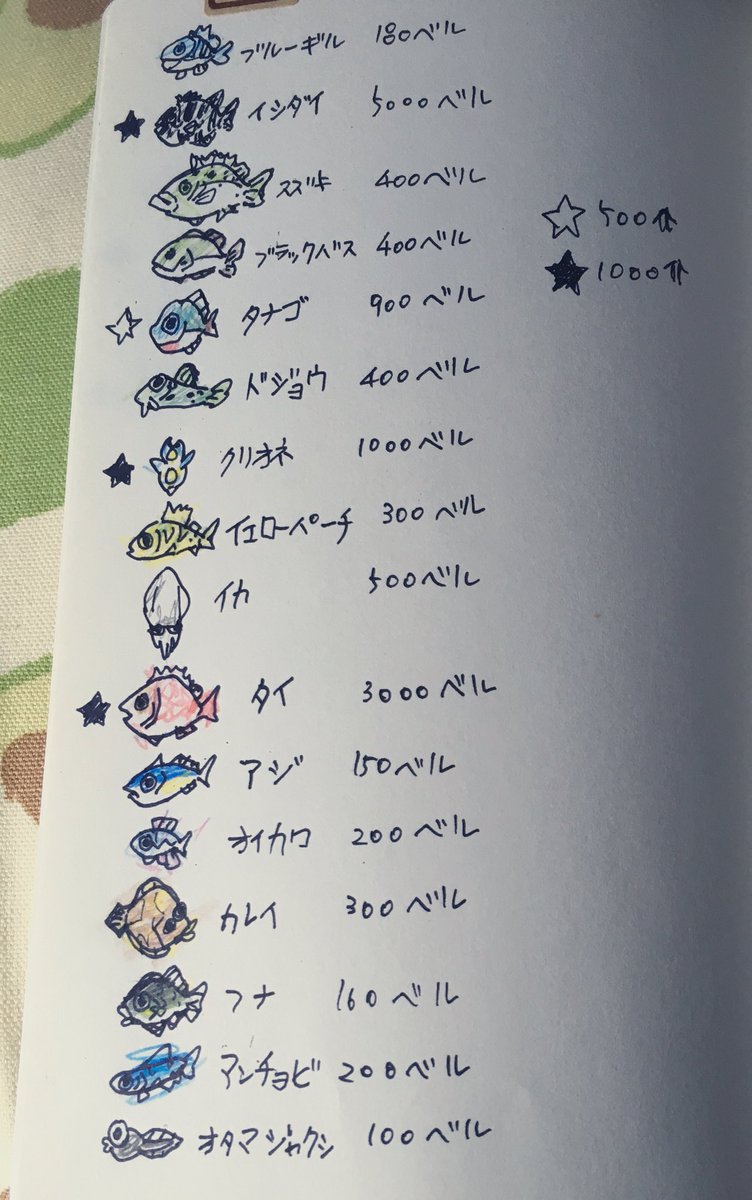 ブルーギル 180ベル
★ イシダイ 5000ベル
スズキ 400ベル
ブラックバス 400ベル
☆ 500
★ 1000
☆ タナゴ 900ベル
ドジョウ 400ベル
★ クリオネ 1000ベル
イエローパーチ 300ベル
イカ 500ベル
★ タイ 3000ベル
アジ 150ベル
オイカワ 200ベル
カレイ 300ベル
フナ 160ベル
アンチョビ 200ベル
オタマジャクシ 100ベル